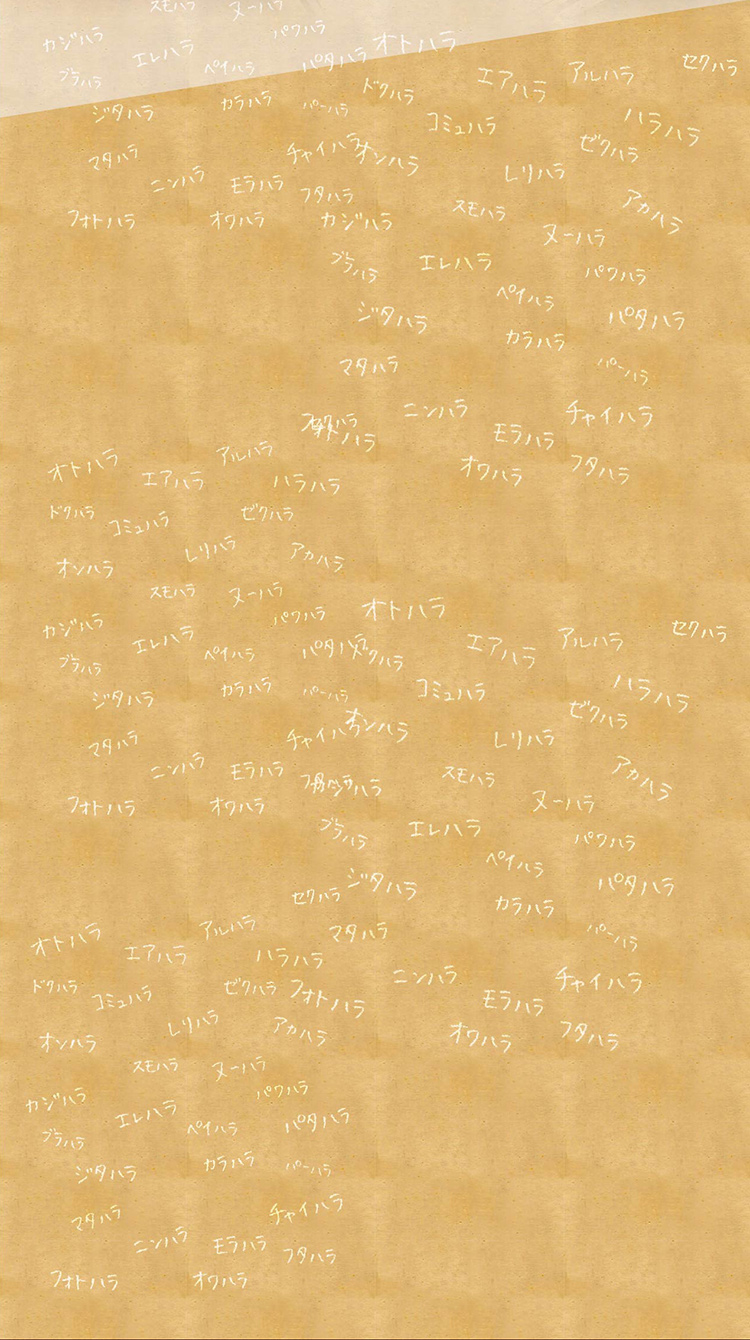 スモハラ
ヌーハラ
パワハラ
カジハラ
エレハラ
オトハラ
ブラハラ
ペイハラ
パタハラ
セクハラ
エアハラ
アルハラ
ドクハラ
ジタハラ
カラハラ
パーハラ
コミュハラ
ハラハラ
マタハラ
チャイハラ
オンハラ
ゼクハラ
ニンハラ
モラハラ
フタハラ
レリハラ
フォトハラ
オワハラ
カジハラ
スモハラ
アカハラ
ヌーハラ
ブラハラ
エレハラ
パワハラ
ペイハラ
ジタハラ
パタハラ
カラハラ
マタハラ
パーハラ
ニンハラ
チャイハラ
セクハラ
フォトハラ
モラハラ
オトハラ
エアハラ
アルハラ
オワハラ
フタハラ
ハラハラ
ドクハラ
コミュハラ
ゼクハラ
オンハラ
レリハラ
アカハラ
スモハラ
ヌーハラ
パワハラ
オトハラ
カジハラ
エレハラ
エアハラ
アルハラ
セクハラ
ブラハラ
ペイハラ
パタハラ
ドクハラ
ジタハラ
カラハラ
パーハラ
コミュハラ
ハラハラ
マタハラ
チャイハラ
オンハラ
レリハラ
ゼクハラ
ニンハラ
モラハラ
フタハラ
カジハラ
スモハラ
アカハラ
フォトハラ
オワハラ
ヌーハラ
ブラハラ
エレハラ
パワハラ
ペイハラ
セクハラ
ジタハラ
パタハラ
カラハラ
オトハラ
エアハラ
アルハラ
マタハラ
パーハラ
ハラハラ
ドクハラ
コミュハラ
ゼクハラ
フォトハラ
ニンハラ
モラハラ
チャイハラ
オンハラ
レリハラ
アカハラ
オワハラ
フタハラ
スモハラ
ヌーハラ
パワハラ
カジハラ
エレハラ
ペイハラ
パタハラ
ブラハラ
ジタハラ
カラハラ
パーハラ
マタハラ
チャイハラ
ニンハラ
モラハラ
フタハラ
フォトハラ
オワハラ